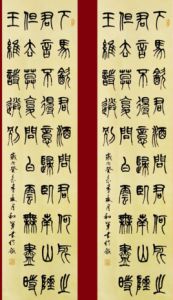 下馬飲君酒問君何所之
君言不得意歸臥南山陲
但去莫復問白雲無盡時
王維詩送別
下馬飲君酒問君何所之
君言不得意歸臥南山陲
但去莫復問白雲無盡時
王維詩送別